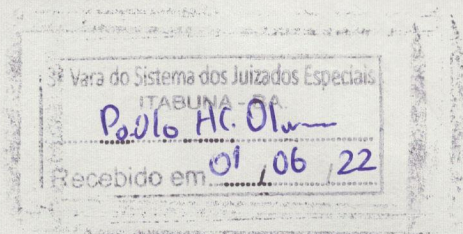 Vara do Sistema dos Juizados Especiais
ITABUNA - BA.
Paulo HC.
Recebido em 01, 06, 22